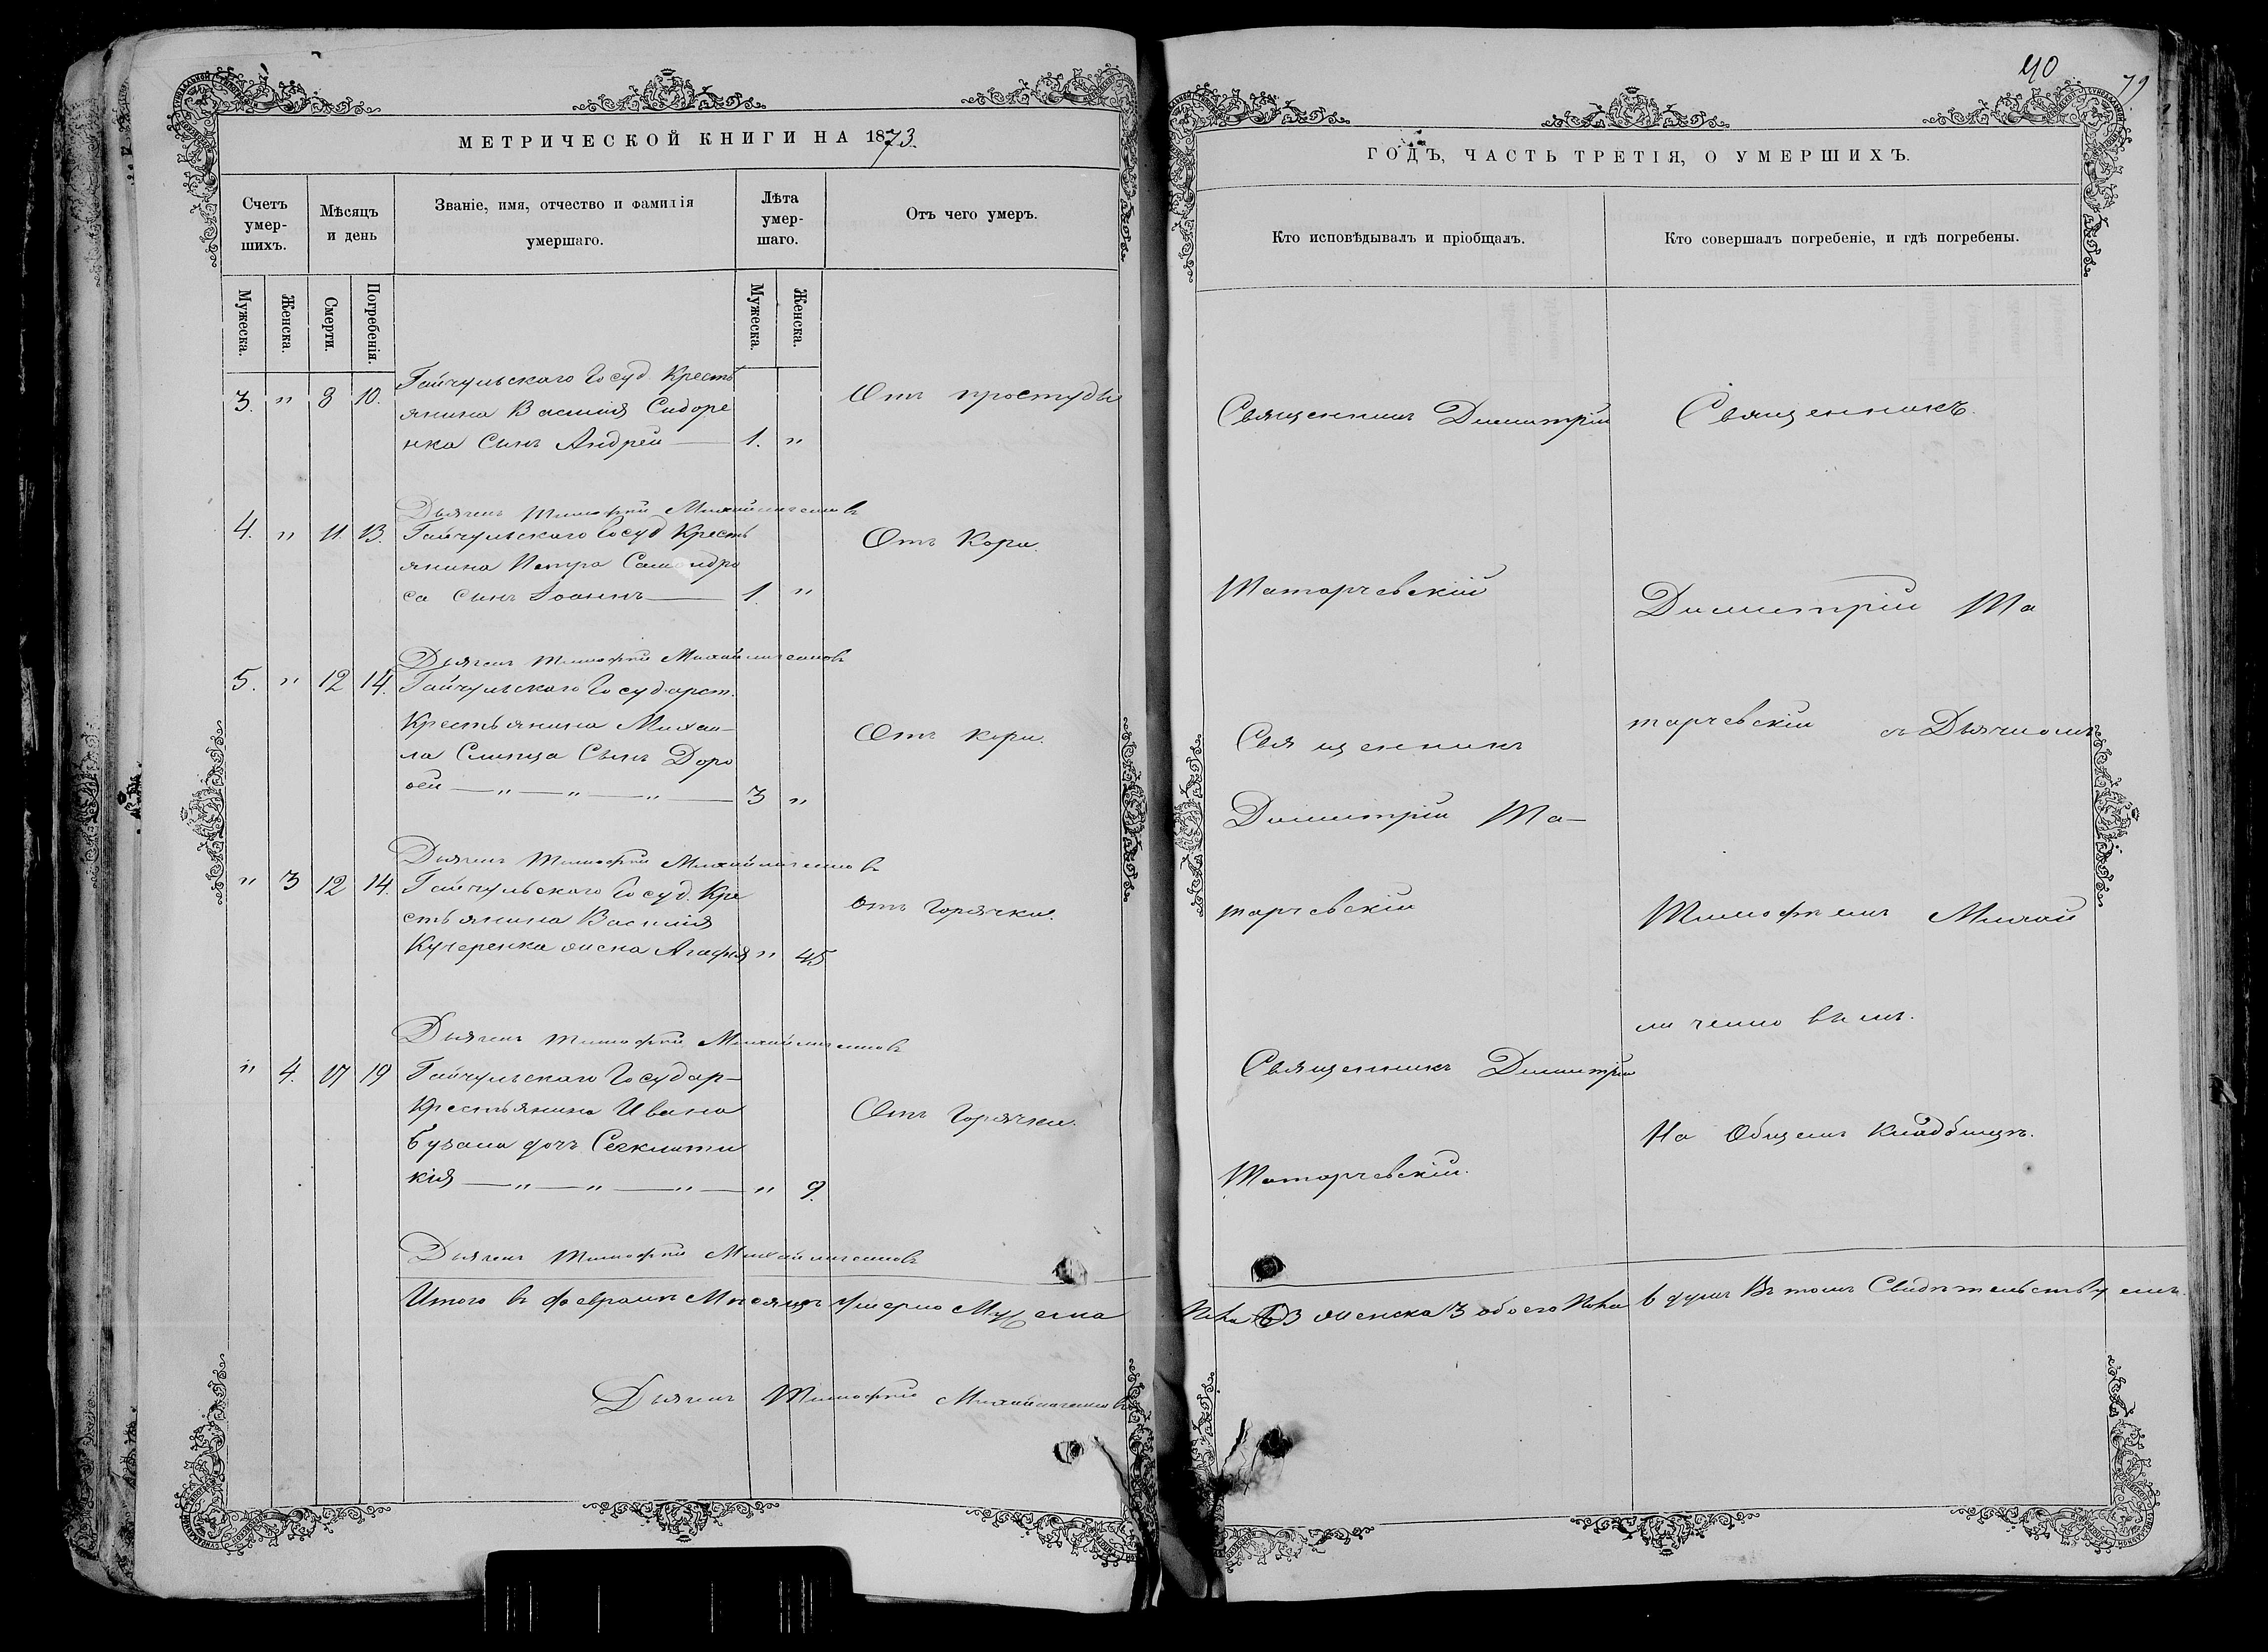 МЕТРИЧЕСКОЙ КНИГИ НА 1873.
Счетъ умер-шихъ.
Мѣсяцъ и день
Званіе, имя, отчество и фамилія
умершаго.
Лѣта умер-шаго.
Отъ чего умеръ.
Мужеска.
Женска.
Смерти.
Погребенія.
Мужеска.
Женска.
Гайчульскаго Госуд. Кресть
3. " 8 10. янина Василія Сидоре Отъ простуды
нка Сынъ Андрей — 1. "
Дьячекъ Тимофѣй Михайличенковъ
4. " 11. 13. Гайчульскаго Госуд Кресть Отъ Кори.
янина Петра
са сынъ Іоаннъ — 1. "
Дьячекъ Тимофѣй Михайличенковъ
5. " 12 14. Гайчульскаго Государст.
Крестьянина Михаи-
ла Слипца Сынъ Доро Отъ кори.
ѳей — " — " — " — 3 "
Дьячекъ Тимофѣй Михайличенковъ
" 3 12 14. Гайчульскаго Госуд. Кре
стьянина Василія Отъ Горячки.
Кучеренка жена Агафія " 45
Дьячекъ Тимофѣй Михайличенковъ
" 4. 17 19 Гайчульскаго Государ-
Крестьянина Ивана Отъ Горячки.
дочь
кія — " — " — " — " 9.
Дьячекъ Тимофѣй Михайличенковъ
Итого въ февралѣ Мѣсяцѣ Умерло Мужеска
Дьячекъ Тимофѣй Михайличенковъ
40
79
ГОДЪ, ЧАСТЬ ТРЕТІЯ, О УМЕРШИХЪ.
Кто исповѣдывалъ и пріобщалъ.
Кто совершалъ погребеніе, и гдѣ погребены.
Священникъ Димитрій
Таторчевскій
Священникъ
Димитрій Та-
торчевскій
Священникъ Димитрій
Таторчевскій.
Священникъ
Димитрій Та
торчевскій съ Дьячкомъ
Тимофѣемъ Михай
личенковымъ.
На Общемъ Кладбищѣ.
Пола 3 женска 3 обоего Пола 6 душъ Въ томъ Свидѣтельствуемъ.